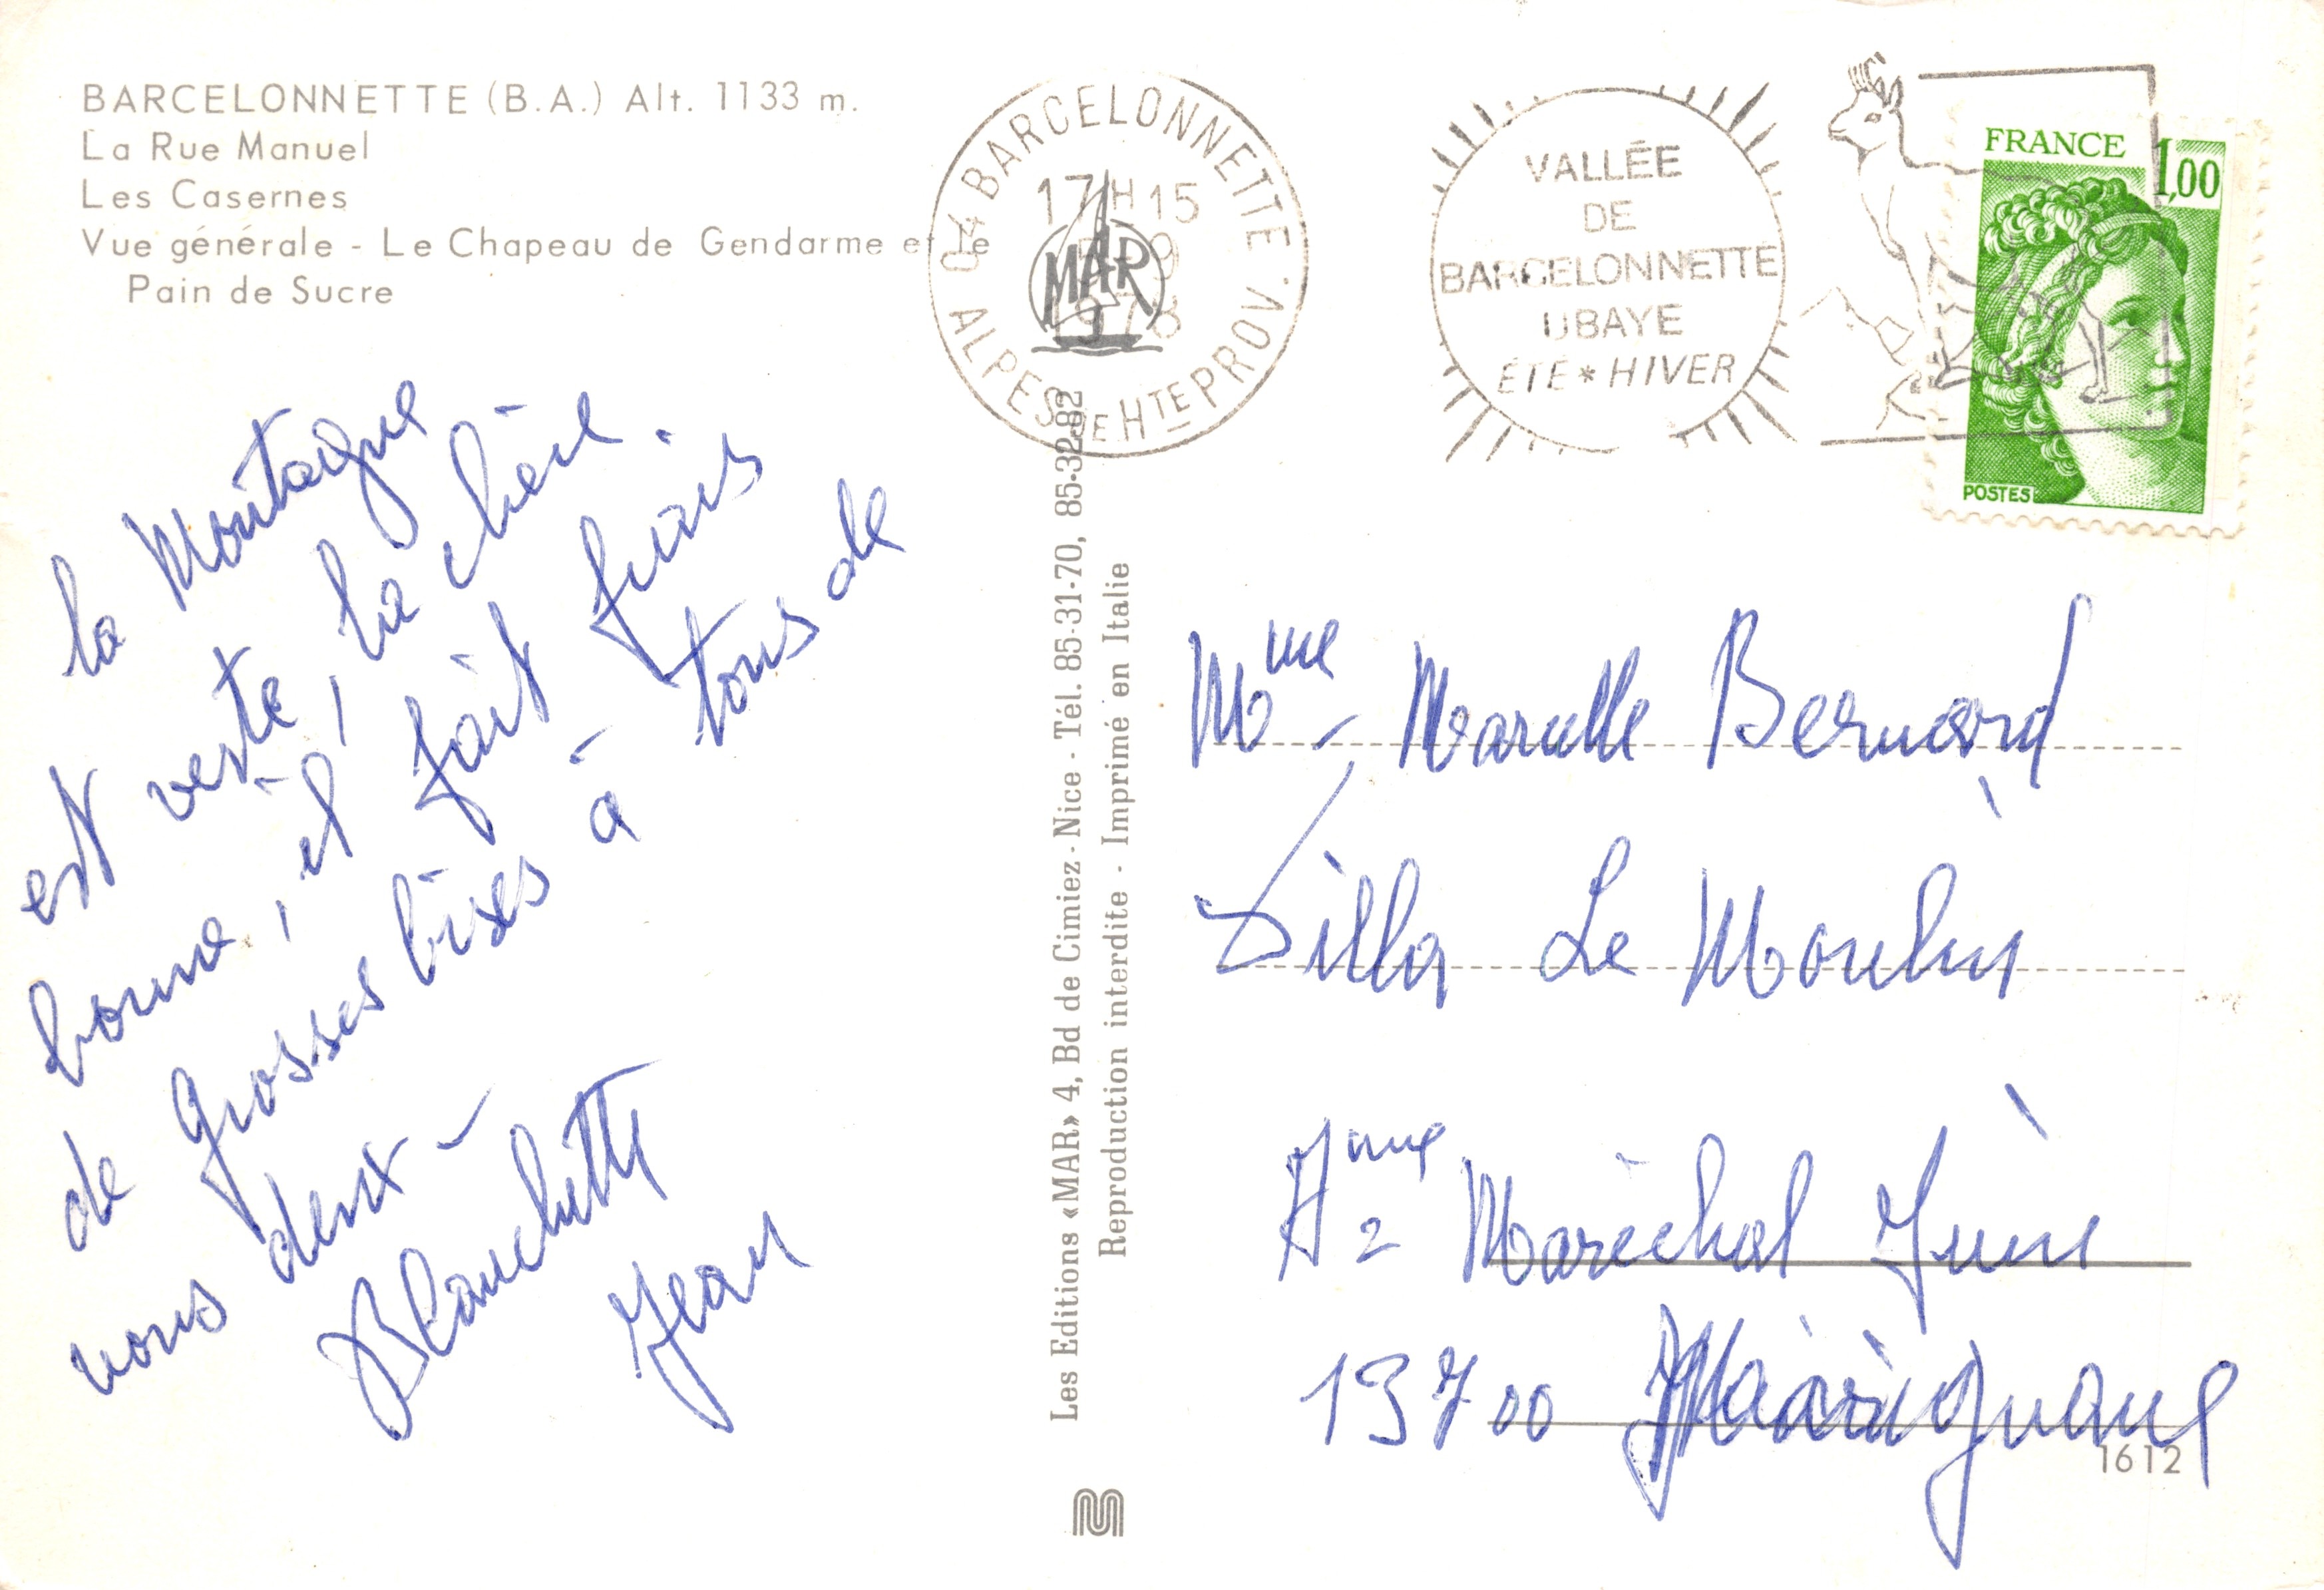 BARCELONNETTE (B.A.) Alt. 1133 m.
La Rue Manuel
Les Casernes
Vue générale - Le Chapeau de Gendarme et Le
Pain de Sucre
04 BARCELONNETTE
17H15
-9
1978
ALPES DE HTE PROV.
MAR
VALLÉE
DE
BARCELONNETTE
UBAYE
ÉTÉ * HIVER
FRANCE 1,00
POSTES
la Montagne
est verte, la chère
bonne, il fait frais.
de grosses bises à tous de
vous deux -
Blanchette
Jean
Les Editions «MAR» 4, Bd de Cimiez - Nice - Tél. 85-31-70, 85-32-82
Reproduction interdite - Imprimé en Italie
Mme - Marcelle Bernard
Villa Le Moulin
Maréchal Juin
13700 Marignane
1612